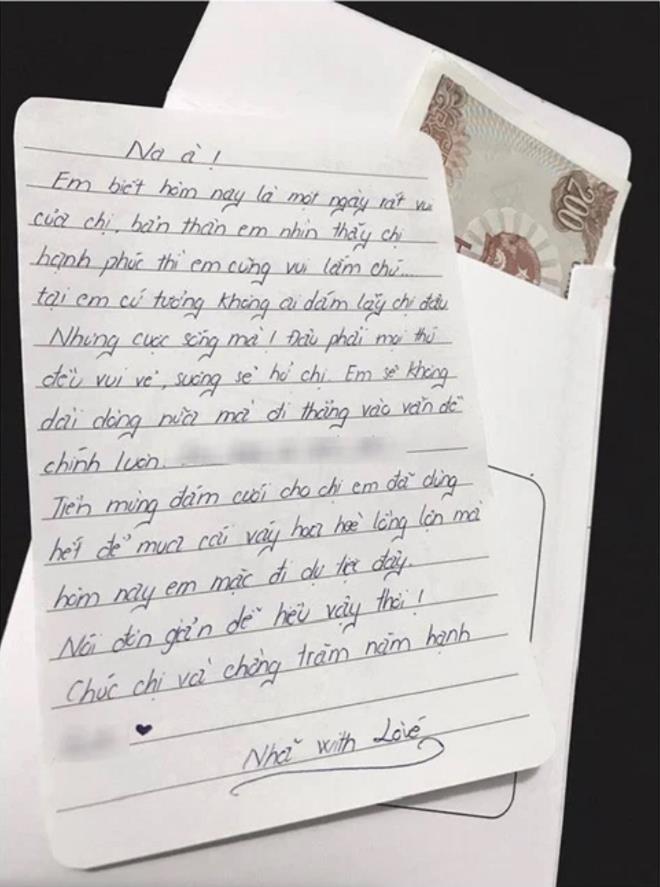 Na à!
Em biết hôm nay là một ngày rất vui
của chị, bản thân em nhìn thấy chị
hạnh phúc thì em cũng vui lắm chứ...
tại em cứ tưởng không ai dám lấy chị đâu
Nhưng cuộc sống mà! Đâu phải mọi thứ
đều vui vẻ, suông sẻ hở chị. Em sẽ không
dài dòng nữa mà đi thẳng vào vấn đề
chính luôn.
Tiền mừng đám cưới cho chị em đã dùng
hết để mua cái váy hoa hoè lồng lộn mà
hôm nay em mặc đi dự tiệc đấy.
Nói đơn giản dễ hiểu vậy thôi!
Chúc chị và chồng trăm năm hạnh
♥
Nhã with Love
200